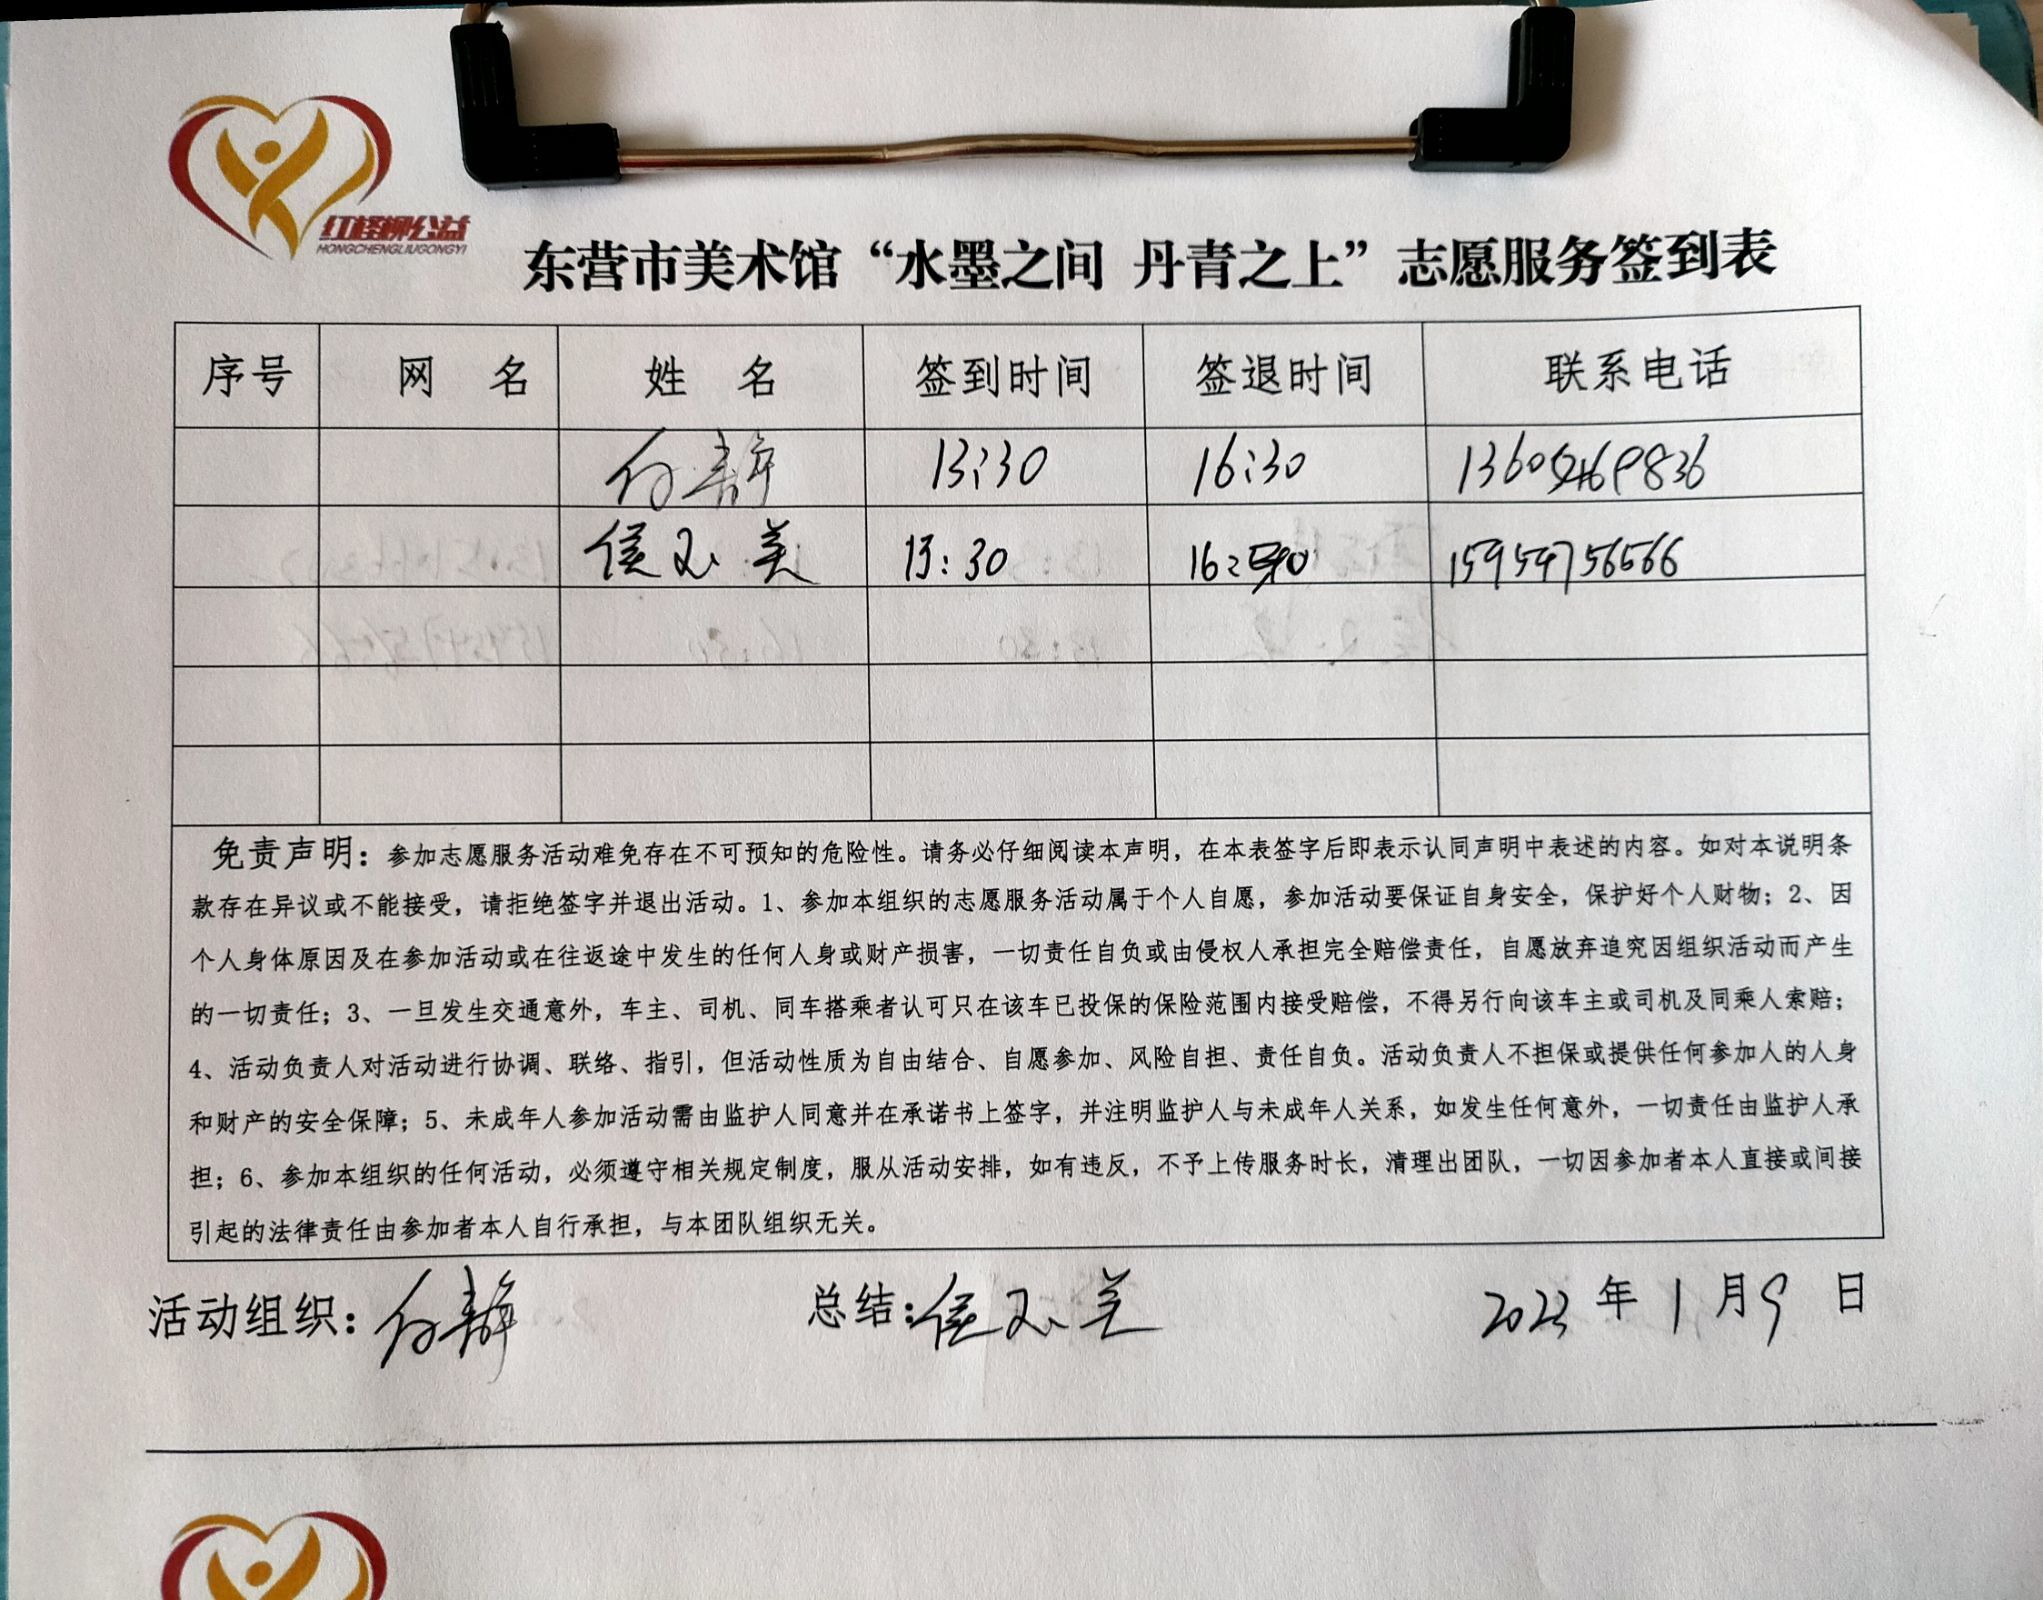 红柽柳公益
HONGCHENGLIUGONGYI
东营市美术馆“水墨之间 丹青之上”志愿服务签到表
序号 网 名 姓 名 签到时间 签退时间 联系电话
付静 13:30 16:30
侯玉美 13:30 15954756566
免责声明：参加志愿服务活动难免存在不可预知的危险性。请务必仔细阅读本声明，在本表签字后即表示认同声明中表述的内容。如对本说明条
款存在异议或不能接受，请拒绝签字并退出活动。1、参加本组织的志愿服务活动属于个人自愿，参加活动要保证自身安全，保护好个人财物；2、因
个人身体原因及在参加活动或在往返途中发生的任何人身或财产损害，一切责任自负或由侵权人承担完全赔偿责任，自愿放弃追究因组织活动而产生
的一切责任；3、一旦发生交通意外，车主、司机、同车搭乘者认可只在该车已投保的保险范围内接受赔偿，不得另行向该车主或司机及同乘人索赔；
4、活动负责人对活动进行协调、联络、指引，但活动性质为自由结合、自愿参加、风险自担、责任自负。活动负责人不担保或提供任何参加人的人身
和财产的安全保障；5、未成年人参加活动需由监护人同意并在承诺书上签字，并注明监护人与未成年人关系，如发生任何意外，一切责任由监护人承
担；6、参加本组织的任何活动，必须遵守相关规定制度，服从活动安排，如有违反，不予上传服务时长，清理出团队，一切因参加者本人直接或间接
引起的法律责任由参加者本人自行承担，与本团队组织无关。
活动组织：付静 总结：侯玉美 2023 年 1 月 9 日